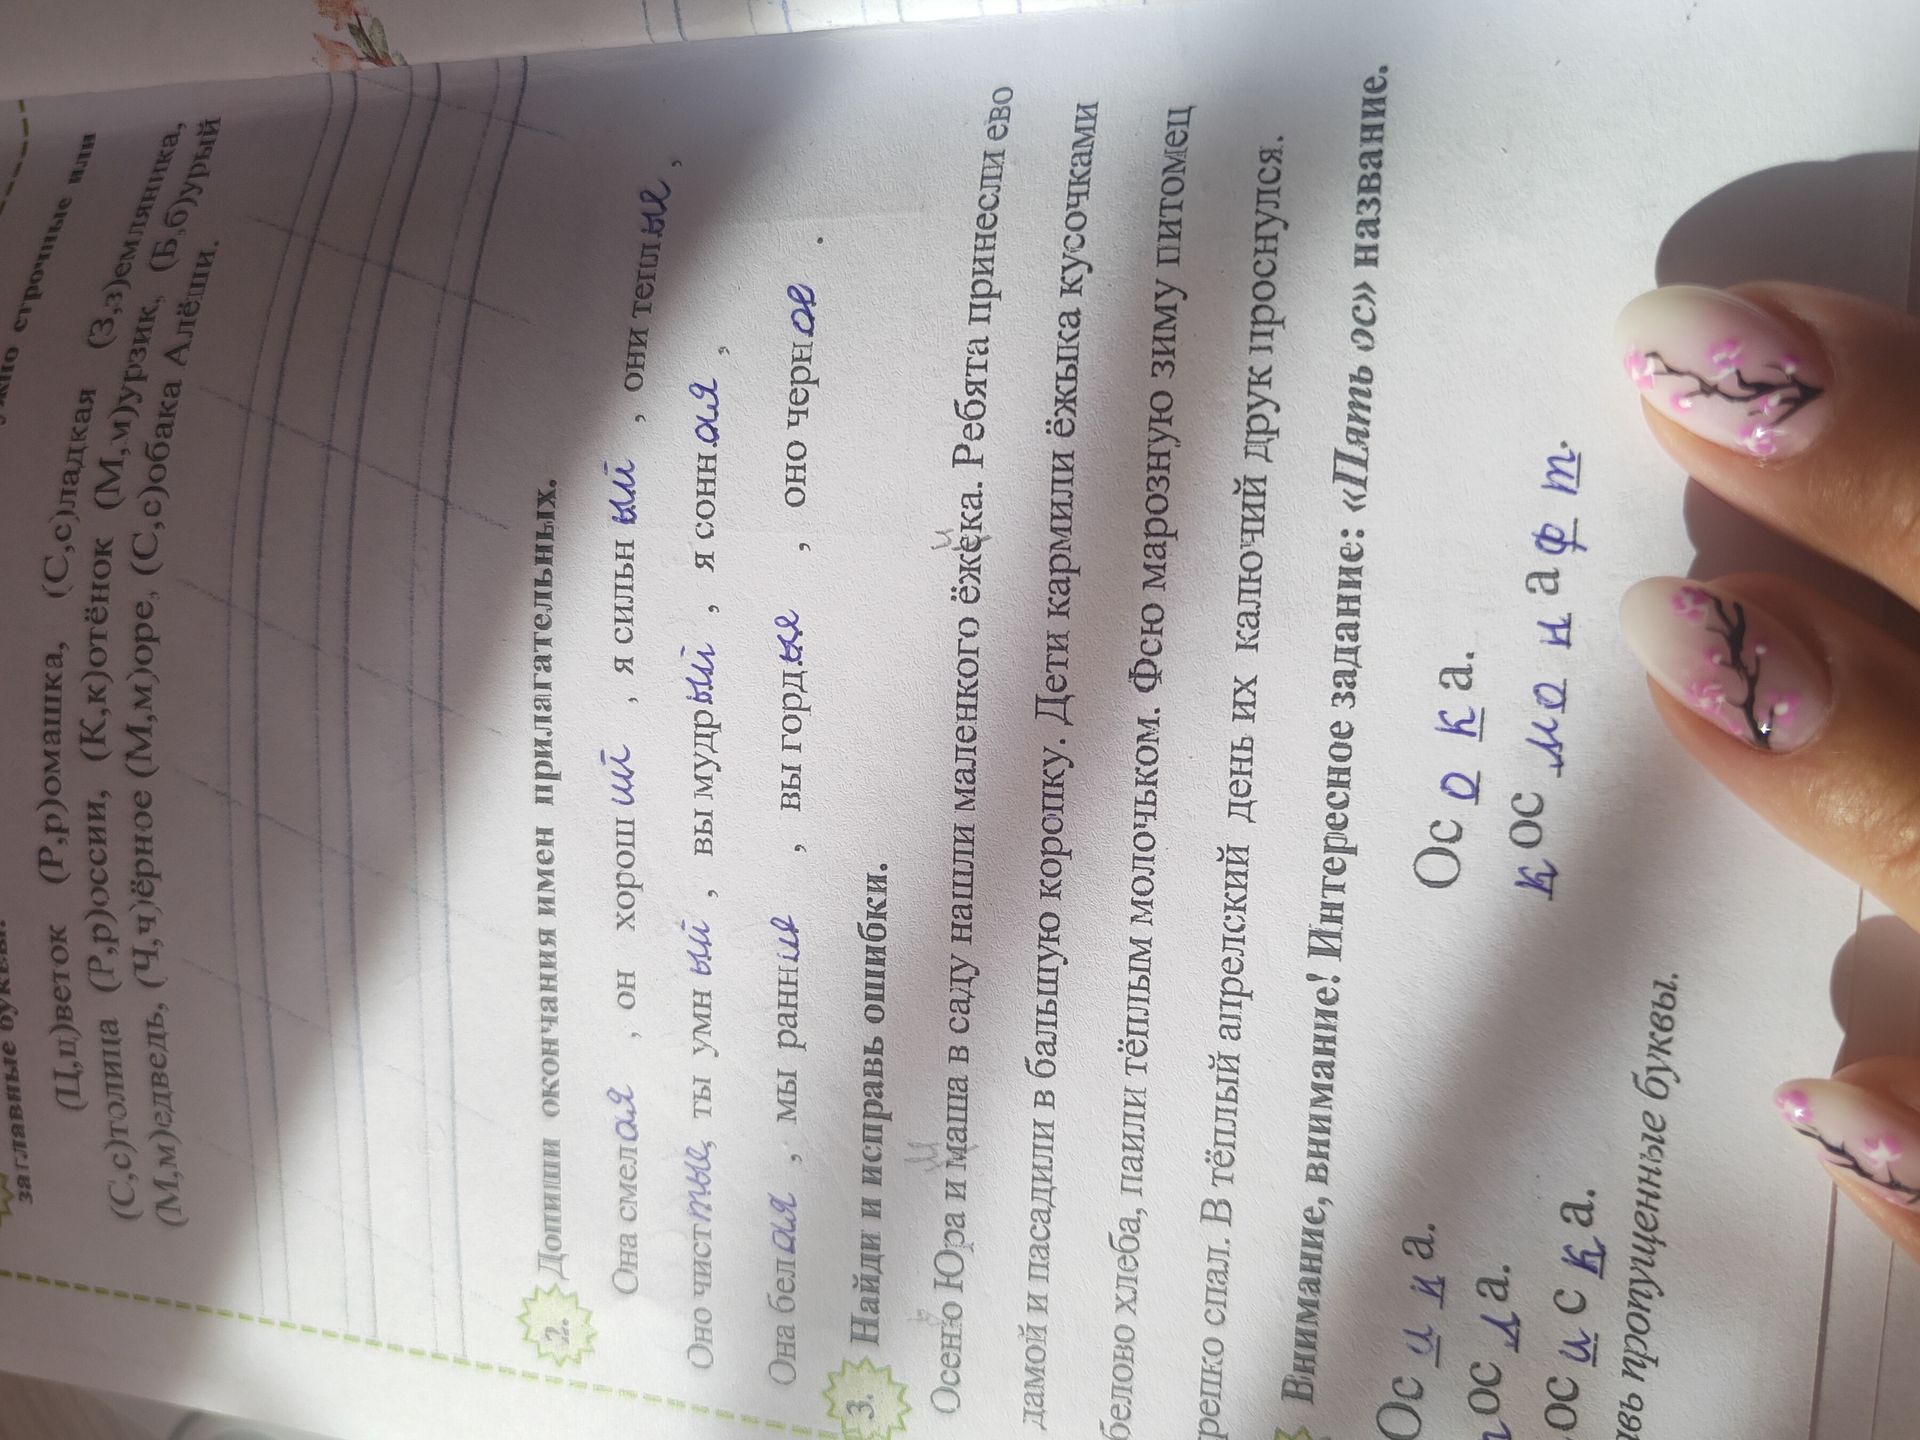 заглавные буквы.
строчные или
(Ц,ц)веток (Р,р)омашка, (С,с)ладкая (З,з)емляника,
(С,с)толица (Р,р)оссии, (К,к)отёнок (М,м)урзик, (Б,б)урый
(М,м)едведь, (Ч,ч)ёрное (М,м)оре, (С,с)обака Алёши.
2. Допиши окончания имен прилагательных.
Она смелая, он хороший, я сильный, они теплые,
Оно чисттые, ты умный, вы мудрый, я сонная,
Она белая, мы ранние, вы гордые, оно черное.
3. Найди и исправь ошибки.
Осеню Юра и маша в саду нашли маленкого ёжека. Ребята принесли ево
дамой и пасадили в бальшую коропку. Дети кармили ёжыка кусочками
белово хлеба, паили тёплым молочьком. Фсю марозную зиму питомец
репко спал. В тёплый апрелский день их калючий друк проснулся.
Внимание, внимание! Интересное задание: «Пять ос» название.
Ос и н а. Ос о к а.
ос л а. к ос м о н а ф т.
ос и с к а.
вь пропущенные буквы.